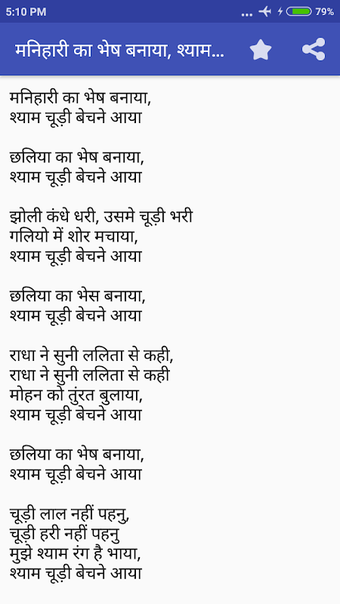 5:10 PM ... 79%
मनिहारी का भेष बनाया, श्याम...
मनिहारी का भेष बनाया,
श्याम चूड़ी बेचने आया
छलिया का भेष बनाया,
श्याम चूड़ी बेचने आया
झोली कंधे धरी, उसमे चूड़ी भरी
गलियो में शोर मचाया,
श्याम चूड़ी बेचने आया
छलिया का भेस बनाया,
श्याम चूड़ी बेचने आया
राधा ने सुनी ललिता से कही,
राधा ने सुनी ललिता से कही
मोहन को तुंरत बुलाया,
श्याम चूड़ी बेचने आया
छलिया का भेष बनाया,
श्याम चूड़ी बेचने आया
चूड़ी लाल नहीं पहनु,
चूड़ी हरी नहीं पहनु
मुझे श्याम रंग है भाया,
श्याम चूड़ी बेचने आया